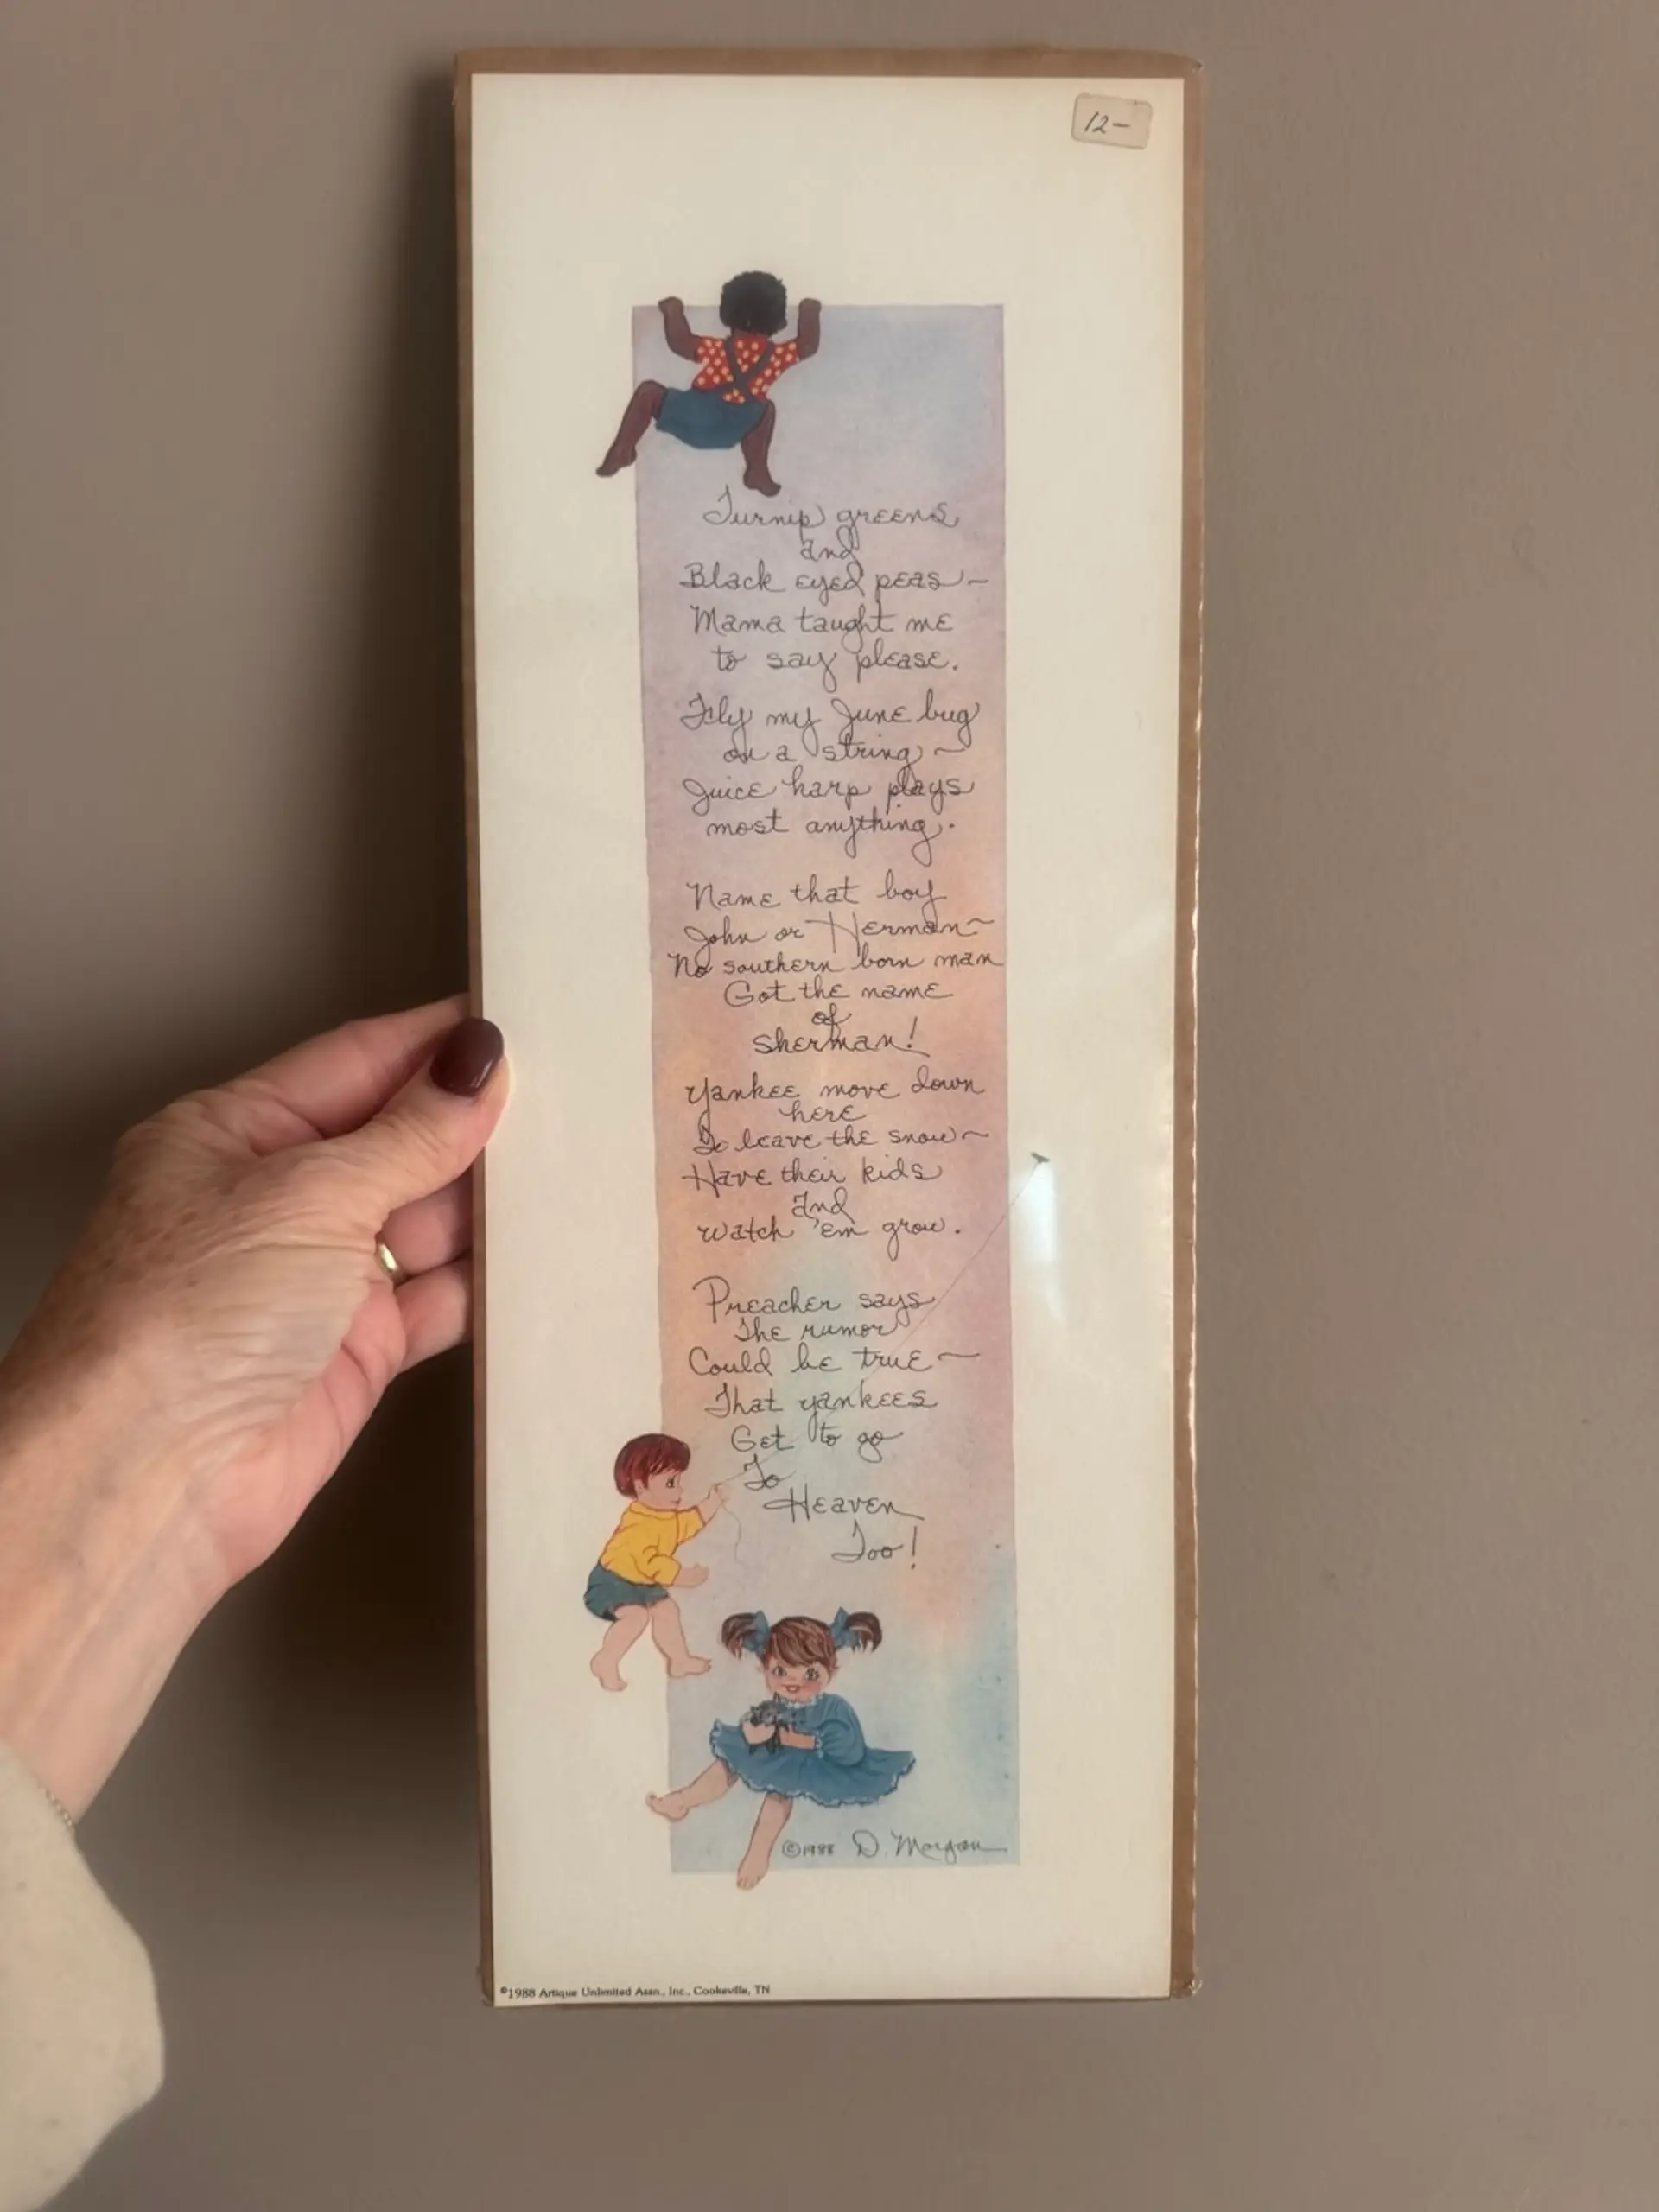 12-
Turnip greens
and
Black eyed peas ~
Mama taught me
to say please.
Fly my June bug
on a string ~
Juice harp plays
most anything.
Name that boy
John or Herman ~
No southern born man
Got the name
of
Sherman!
Yankee move down
here
To leave the snow ~
Have their kids
And
watch 'em grow.
Preacher says
The rumor
Could be true ~
That yankees
Get to go
To
Heaven
Too!
©1988 D. Morgan
©1988 Artique Unlimited Assn., Inc., Cookeville, TN